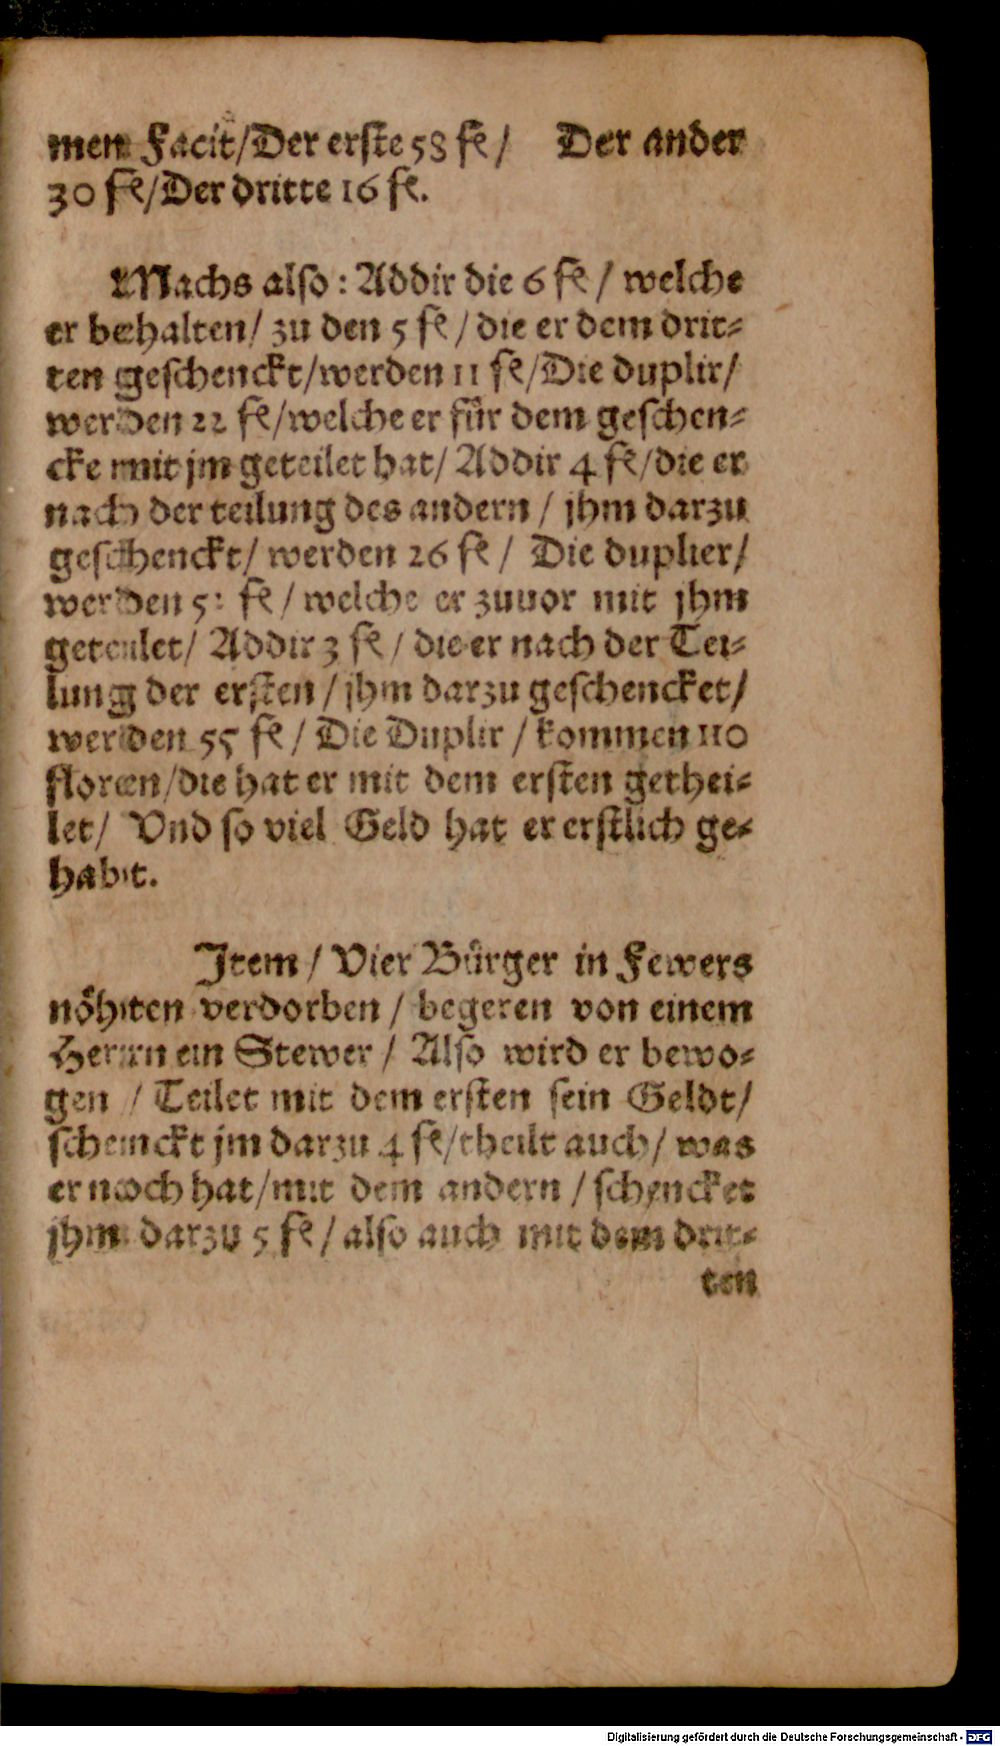 men Facit/Der erste 58 fl/ Der ander
30 fl/Der dritte 16 fl.
Machs also: Addir die 6 fl/ welche
er behalten/ zu den 5 fl/ die er dem drit-
ten geschenckt/werden 11 fl/Die duplir/
werden 22 fl/welche er fůr dem geschen-
cke mit jm geteilet hat/ Addir 4 fl/die er
nach der teilung des andern/ jhm darzu
geschenckt/ werden 26 fl/ Die duplier/
werden 52 fl/ welche er zuuor mit jhm
geteilet/ Addir 3 fl/ die er nach der Tei-
lung der ersten/ jhm darzu geschencket/
werden 55 fl/ Die Duplir/ kommen 110
floren/die hat er mit dem ersten gethei-
let/ Vnd so viel Geld hat er erstlich ge-
habt.
Item/ Vier Bůrger in Fewers
nőhten verdorben/ begeren von einem
Herrn ein Stewer/ Also wird er bewo-
gen / Teilet mit dem ersten sein Geldt/
schenckt jm darzu 4 fl/theilt auch/ was
er noch hat/mit dem andern/ schencket
jhm darzu 5 fl/ also auch mit dem drit-
ten
Digitalisierung gefördert durch die Deutsche Forschungsgemeinschaft - DFG